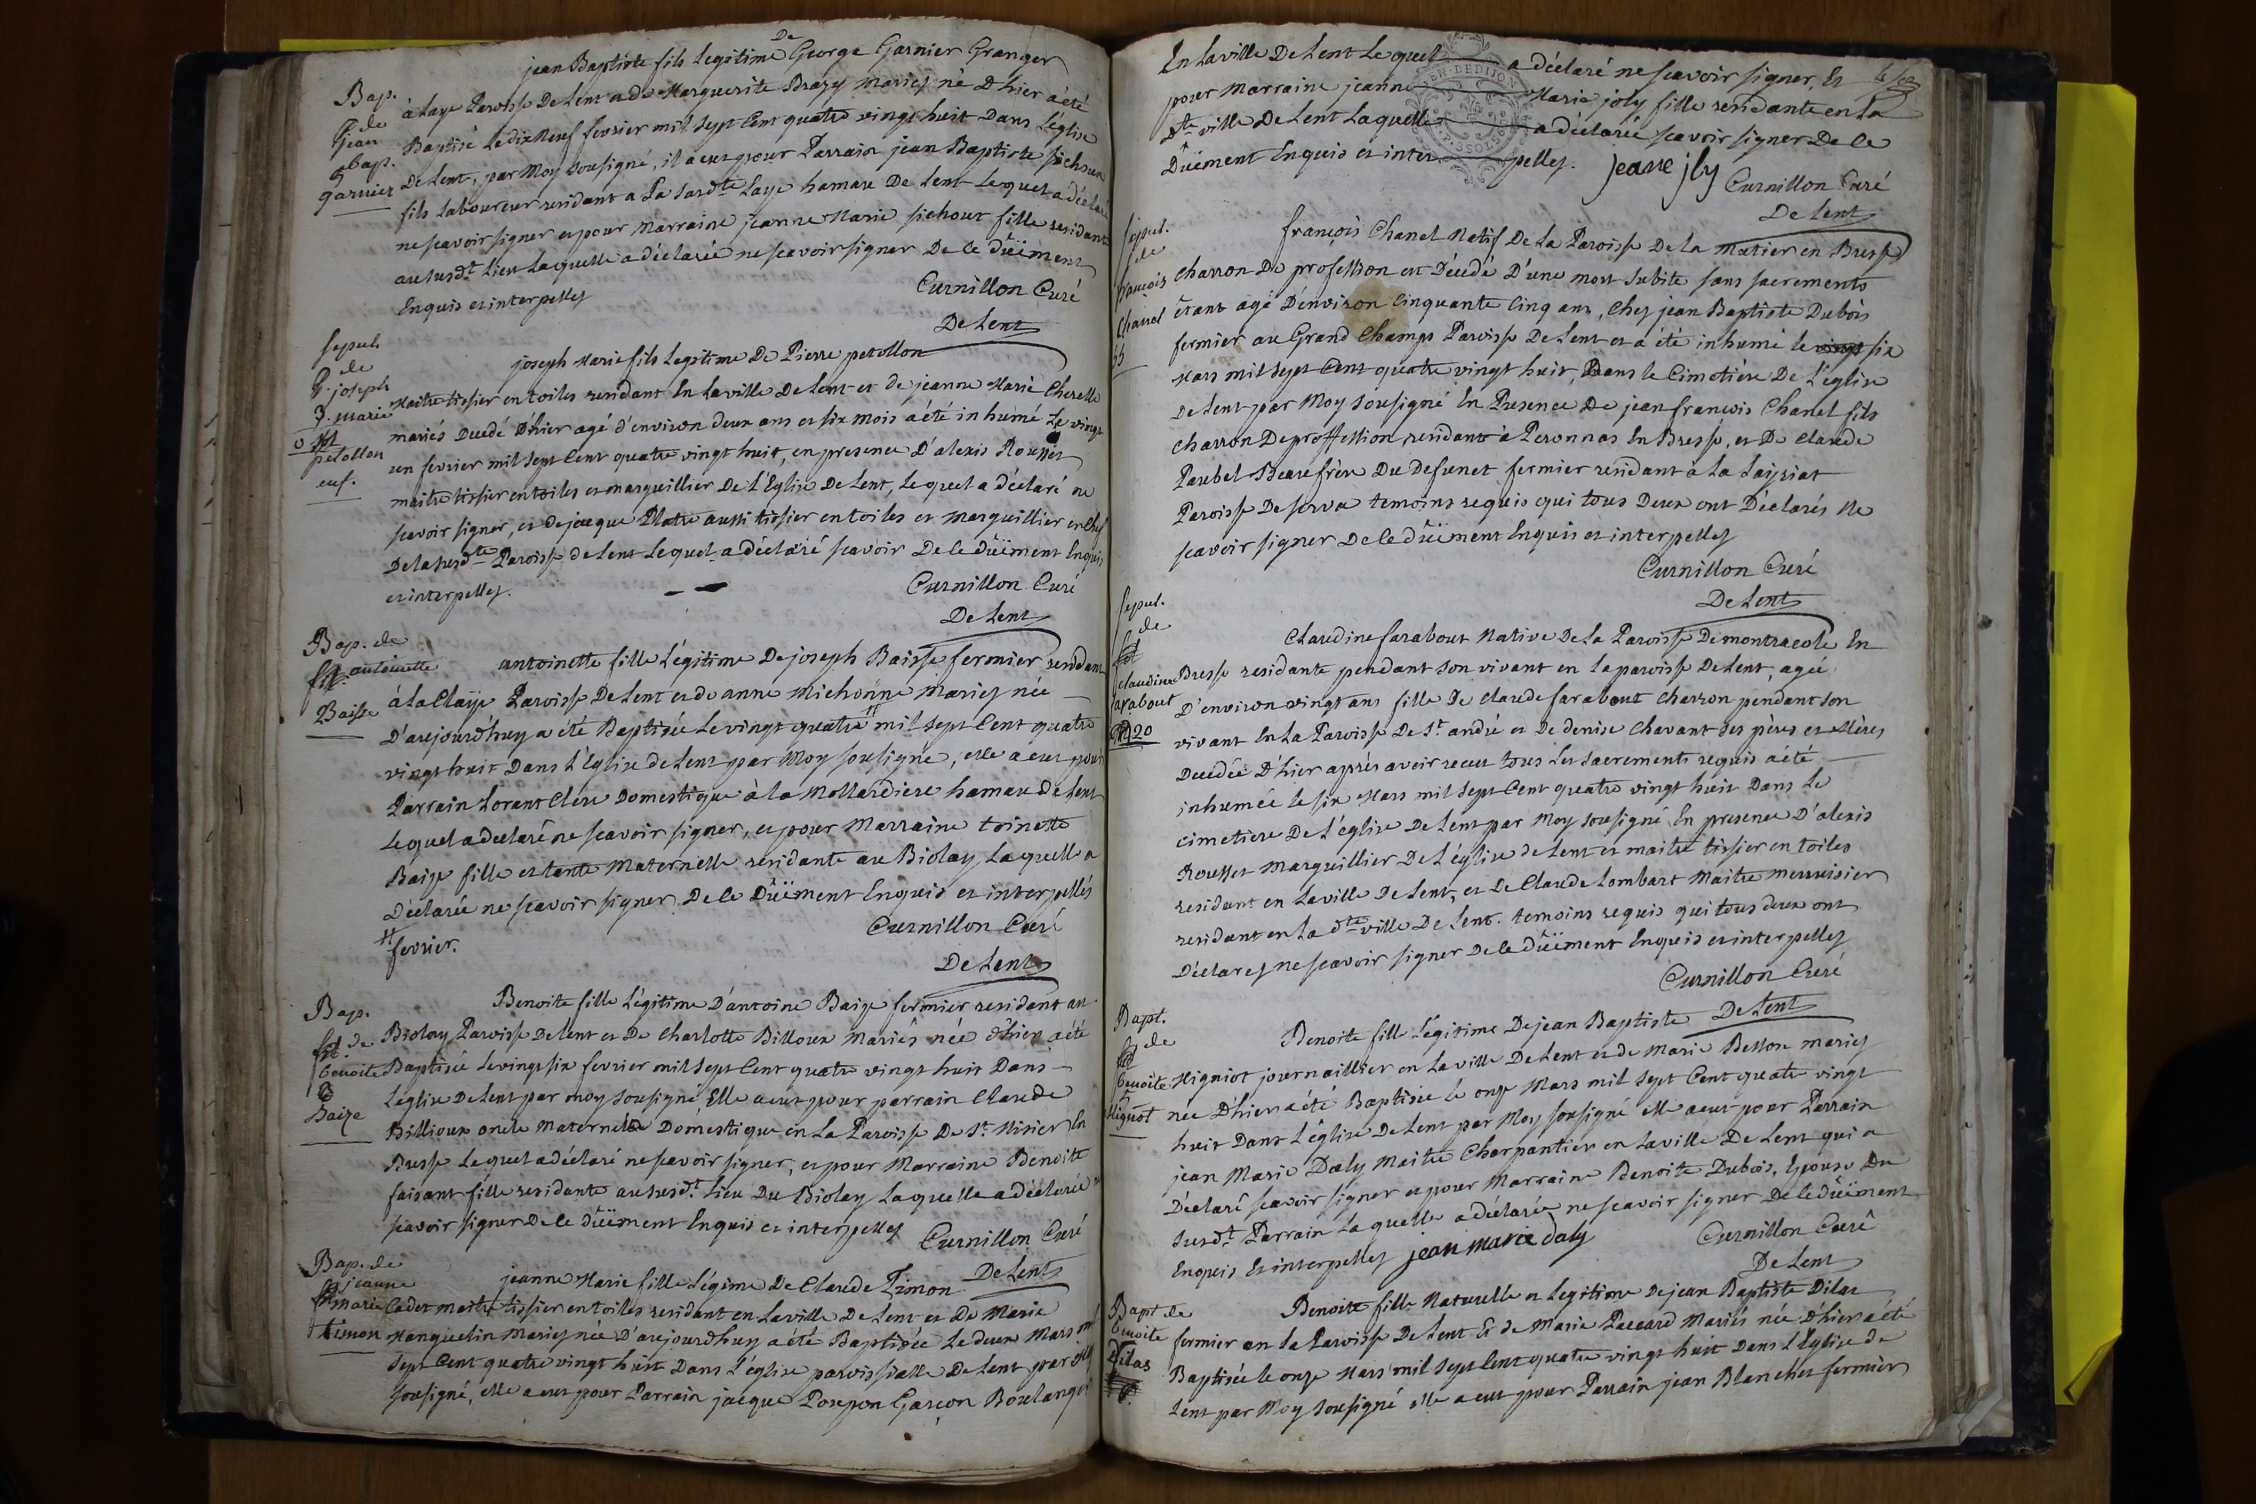 jean Baptiste fils Legitime De George Garnier Granger
Bap.
de
jean
bap.
garnier
à Laye Paroisse De Lent et de Marguerite Brazy mariez né D'hier a été
Baptisé Le dix Neuf fevrier mil sept Cent quatre vingt huit Dans L'église
De Lent, par Moy sousigné, il a eut pour Parrain jean Baptiste sichoux
fils Laboureur residant a La susdte Laye hameau De Lent Lequel a déclaré
ne scavoir signer et pour Marraine jeanne Marie sichoux fille residante
au susdt Lieu Laquelle a déclarée ne scavoir signer De Ce düement
Enquis et interpellez
Curnillon Curé
De Lent
sepul.
de
joseph
marie
petollon
enf.
joseph Marie fils Legitime De Pierre petollon
Maitre tissier en toiles residant En La ville De Lent et de jeanne Marie Cherelle
mariés Decedé D'hier agé d'environ deux ans et six mois a été inhumé Le vingt
un fevrier mil sept Cent quatre vingt huit, en presence D'alexis Rousset
maitre tissier en toiles et marguillier De L'Eglise De Lent, Lequel a déclaré ne
scavoir signer, et de jacque Platre aussi tissier en toiles et marguillier en Chef
De la susdte Paroisse de Lent Lequel a déclaré scavoir De Ce düement Enquis
et interpellez.
Curnillon Curé
De Lent
Bap. de
antoinette
Baisse
antoinette fille Légitime De joseph Baisse fermier residant
à La Claye Paroisse De Lent et de anne Michonne Mariez née
D'aujourd'huy a été Baptisée Le vingt quatre # mil sept Cent quatre
vingt huit Dans L'Eglise de Lent par Moy sousigné, elle a eut pour
Parrain Lorant Clere Domestique à la Mollardiere hameau de Lent
Lequel a declaré ne scavoir signer, et pour Marraine toinette
Baize fille et tante Maternelle residante au Biolay Laquelle a
Déclarée ne scavoir signer De Ce Düement Enquis et interpellés
# fevrier.
Curnillon Curé
De Lent
Bap.
de
benoite
Baize
Benoite fille Légitime D'antoine Baize fermier residant au
Biolay Paroisse De Lent et De Charlotte Billoux Mariés née d'hier a été
Baptisée Le vingt six fevrier mil sept Cent quatre vingt huit Dans
L'église De Lent par moy sousigné, Elle a eut pour parrain Claude
Billioux oncle Maternel Domestique en La Paroisse De St Nisier En
Bresse Lequel a déclaré ne scavoir signer, et pour Marraine Benoite
faisant fille residante au susdt Lieu Du Biolay Laquelle a déclarée
scavoir signer De Ce düement Enquis et interpellez
Curnillon Curé
De Lent
Bap. de
jeanne
marie
timon
jeanne Marie fille Légime De Claude Timon
Cadet maitre tissier en toiles residant en La ville De Lent et De Marie
Manquelin Mariez née D'aujourdhuy a été Baptisée Le deux Mars mil
sept Cent quatre vingt huit Dans L'église paroissialle De Lent par Moy
sousigné, elle a eut pour Parrain jacque Posepon Garcon Boulanger
En La ville De Lent Lequel a déclaré ne scavoir signer, Et
pour Marraine jeanne Marie joly fille residante en La
dte ville De Lent Laquelle a déclarée scavoir signer De Ce
Düement Enquis et interpellez. jeane joly
Curnillon Curé
De Lent
sepul.
de
francois
Chanel
55
françois Chanel Natif De La Paroisse De La Matier en Bresse
Charron De profession est Décédé D'une mort subite sans sacrements
étant agé D'environ Cinquante Cinq ans, Chez jean Baptiste Dubois
fermier au Grand Champs Paroisse De Lent et a été inhumé le vingt six
Mars mil sept Cent quatre vingt huit, Dans le Cimetière De L'église
De Lent par Moy sousigné En Presence De jean francois Chanel fils
Charron De proffession residant à Peronnas En Bresse, et De Claude
Paubel Beaufrère Du Defunct fermier residant à La Laisiat
Paroisse De serva temoins requis qui tous Deux ont Déclarés Ne
scavoir signer De Ce düement Enquis et interpellez
Curnillon Curé
De Lent
sepul.
de
claudine
farabout
20
Claudine farabout Native De La Paroisse De montracole En
Bresse residante pendant son vivant en la paroisse De Lent, agée
D'environ vingt ans fille De Claude farabout Charron pendant son
vivant En La Paroisse De St andré et De denise Chavant ses pères et Mères
Decedée D'hier après avoir receu tous Les sacrements requis a été
inhumée le six Mars mil sept Cent quatre vingt huit Dans Le
Cimetiere De L'église De Lent par Moy sousigné En presence D'alexis
Rousset Marguillier De L'église de Lent et maitre tissier en toiles
residant en La ville De Lent, et De Claude Lombart Maitre menuisier
residant en La dte ville De Lent. temoins requis qui tous deux ont
Déclarez ne scavoir signer De Ce düement Enquis et interpellez
Curnillon Curé
De Lent
Bapt.
de
benoite
Migniot
Benoite fille Légitime De jean Baptiste
Migniot journaillier en La ville De Lent et de Marie Besson mariez
née D'hier a été Baptisée le onze Mars mil sept Cent quatre vingt
huit Dans L'église De Lent par Moy sousigné elle a eut pour Parrain
jean Marie Daly Maitre Charpantier en La ville De Lent qui a
Déclaré scavoir signer et pour Marraine Benoite Dubois, Epouse Du
susdt Parrain Laquelle a déclarée ne scavoir signer De Ce düement
Enquis Et interpellez jean marie daly
Curnillon Curé
De Lent
Bapt de
benoite
Dilas
Benoite fille Naturelle et Legitime De jean Baptiste Dilas
fermier en La Paroisse De Lent Et de Marie Paccard Mariés née D'hier a été
Baptisée le onze Mars mil sept Cent quatre vingt huit Dans L'Eglise de
Lent par Moy sousigné elle a eut pour Parrain jean Blanchet fermier